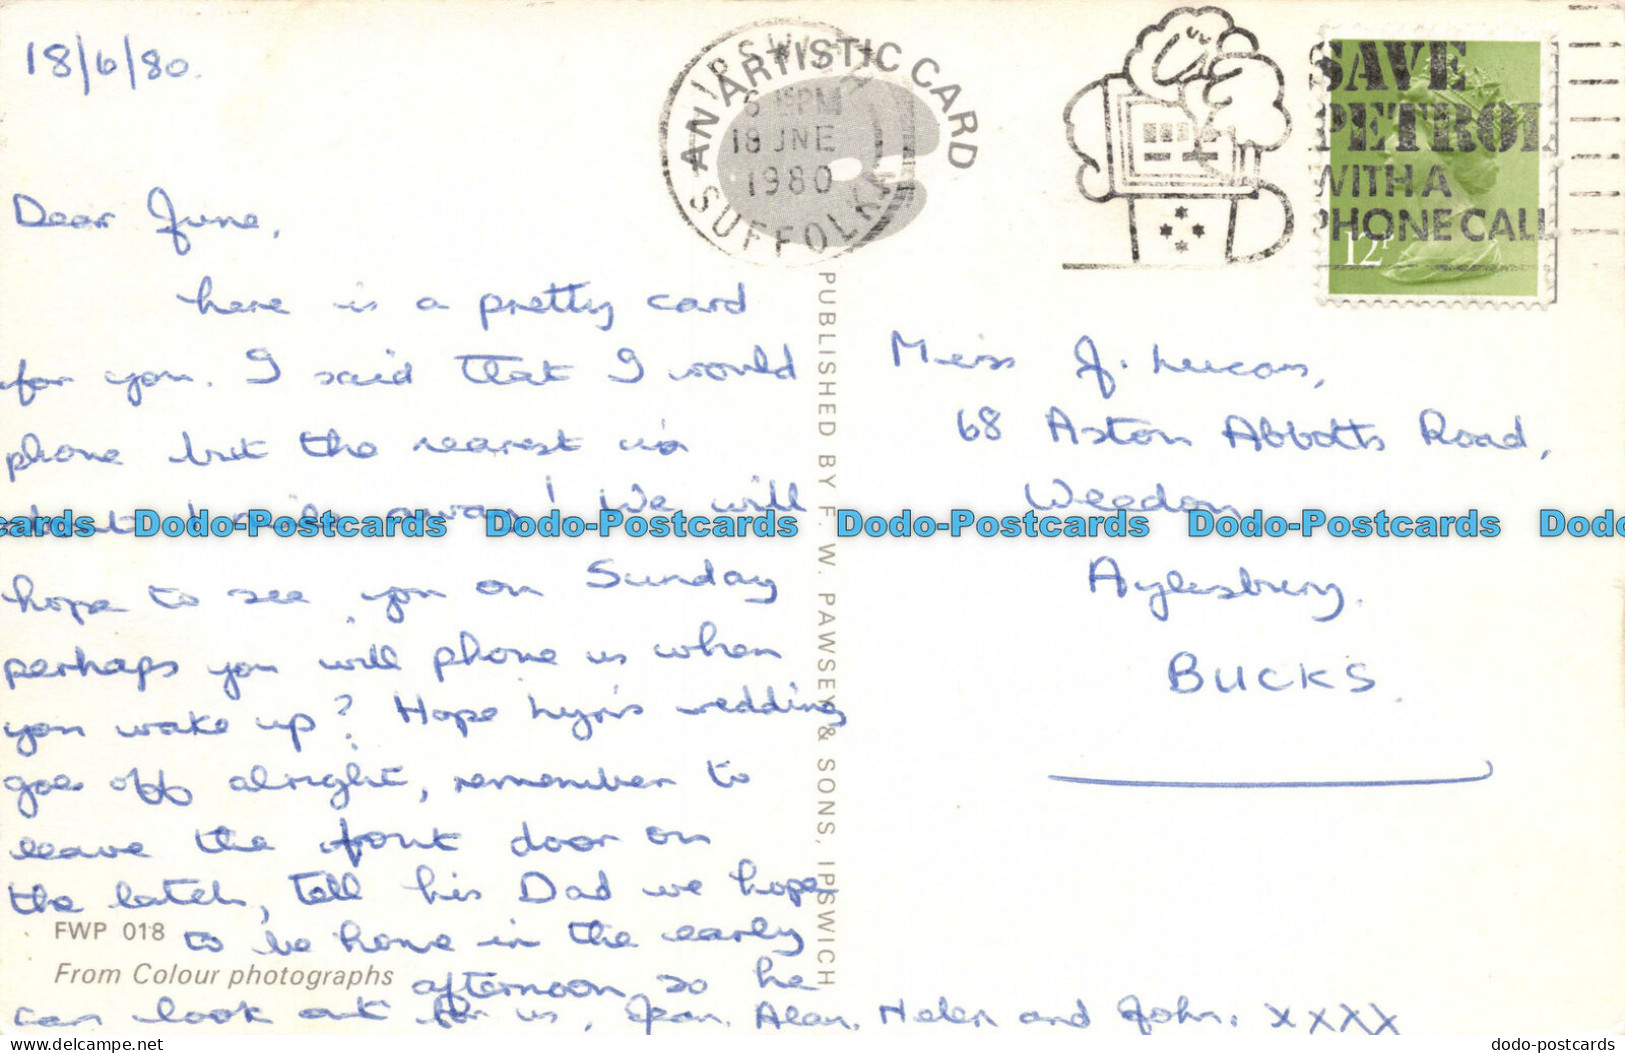 18/6/80.
Dear June,
here is a pretty card
for you. I said that I would
phone but the nearest is
about 1 mile away! We will
hope to see you on Sunday
perhaps you will phone us when
you wake up? Hope Lyn's wedding
goes off alright, remember to
leave the front door on
the latch, tell his Dad we hope
to be home in the early
afternoon so he
can look out for us, Jean, Alan, Helen and John. XXXX
FWP 018
From Colour photographs
AN ARTISTIC CARD
IPSWICH
6 PM
18 JNE
1980
SUFFOLK
PUBLISHED BY F. W. PAWSEY & SONS, IPSWICH
SAVE
PETROL
WITH A
PHONE CALL
12P
Miss J. Lucas,
68 Aston Abbotts Road,
Weedon
Aylesbury.
BUCKS.
cards Dodo-Postcards Dodo-Postcards Dodo-Postcards Dodo-Postcards Dodo
www.delcampe.net
dodo-postcards